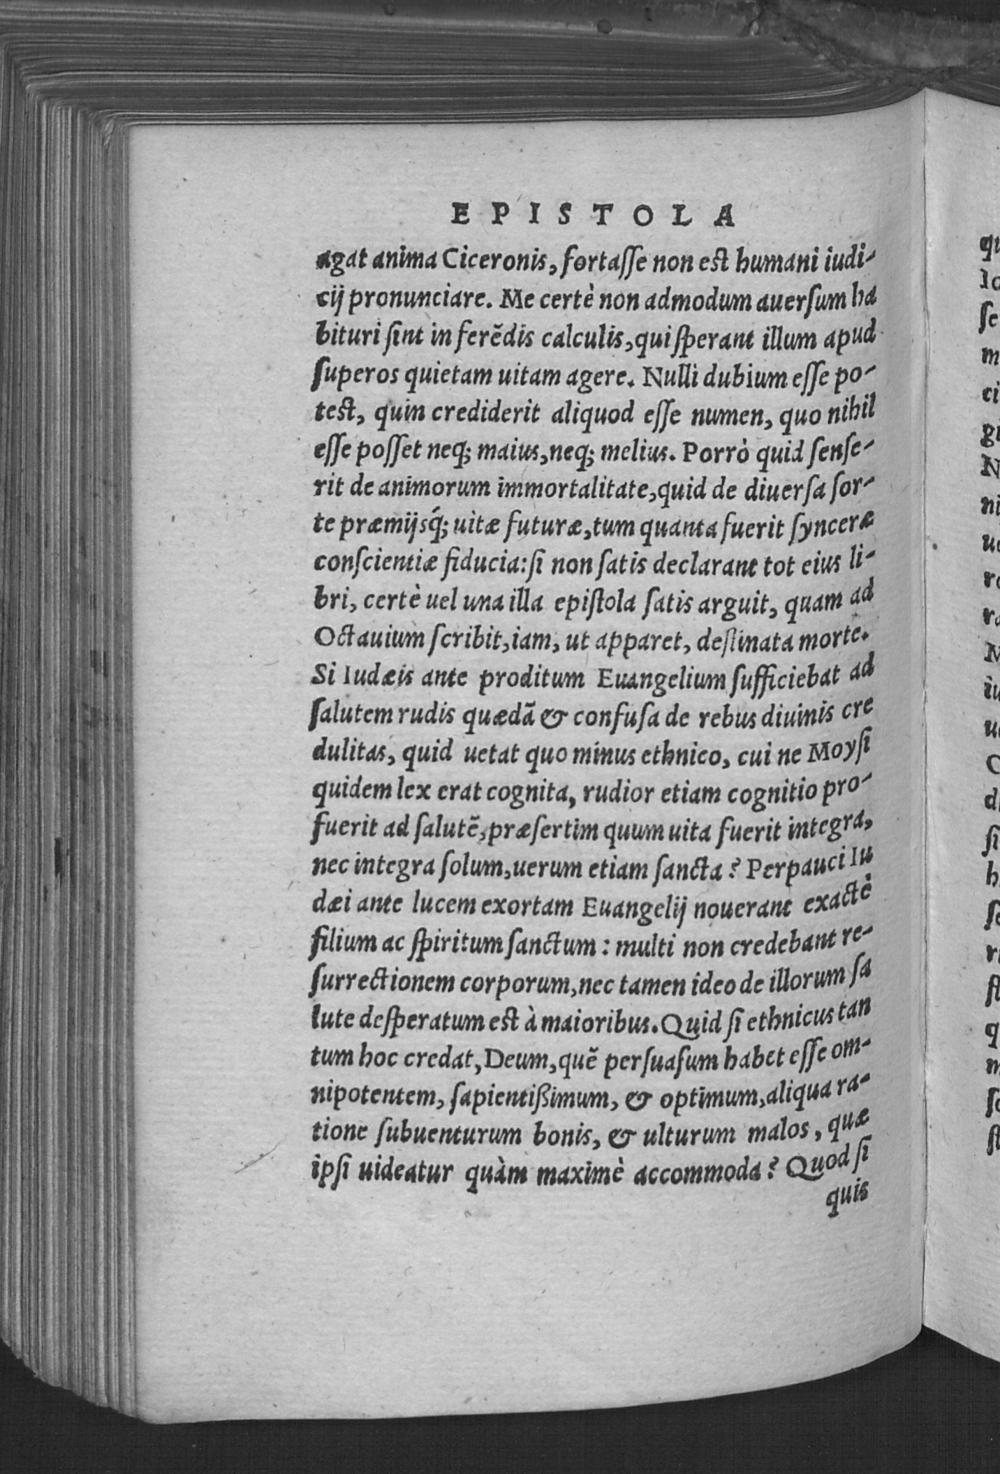 EPISTOLA
agat anima Ciceronis, fortasse non est humani iudi-
cij pronunciare. Me certè non admodum auersum ha
bituri sint in ferẽdis calculis, qui sperant illum apud
superos quietam uitam agere. Nulli dubium esse po-
test, quin crediderit aliquod esse numen, quo nihil
esse posset neq; maius, neq; melius. Porrò quid sense-
rit de animorum immortalitate, quid de diuersa sor-
te præmijsq́; uitæ futuræ, tum quanta fuerit synceræ
conscientiæ fiducia: si non satis declarant tot eius li-
bri, certè uel una illa epistola satis arguit, quam ad
Octauium scribit, iam, ut apparet, destinata morte.
Si Iudæis ante proditum Euangelium sufficiebat ad
salutem rudis quædã & confusa de rebus diuinis cre
dulitas, quid uetat quo minus ethnico, cui ne Moysi
quidem lex erat cognita, rudior etiam cognitio pro-
fuerit ad salutẽ, præsertim quum uita fuerit integra,
nec integra solum, uerum etiam sancta? Perpauci Iu
dæi ante lucem exortam Euangelij nouerant exactè
filium ac spiritum sanctum: multi non credebant re-
surrectionem corporum, nec tamen ideo de illorum sa
lute desperatum est à maioribus. Quid si ethnicus tan
tum hoc credat, Deum, quẽ persuasum habet esse om-
nipotentem, sapientißimum, & optimum, aliqua ra-
tione subuenturum bonis, & ulturum malos, quæ
ipsi uideatur quàm maximè accommoda? Quod si
quis